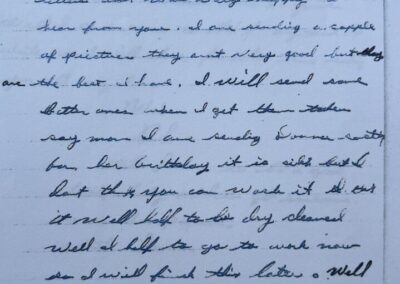 hear from you. I am sending a copple
of pictures they arnt very good but they
are the best I have. I will send some
better ones when I get them taken
say mom I am sending
for her birthday it is silk but I
dont think you can wash it I
it will haft to be dry cleaned
Well I haft to go to work now
so I will finish this later. Well